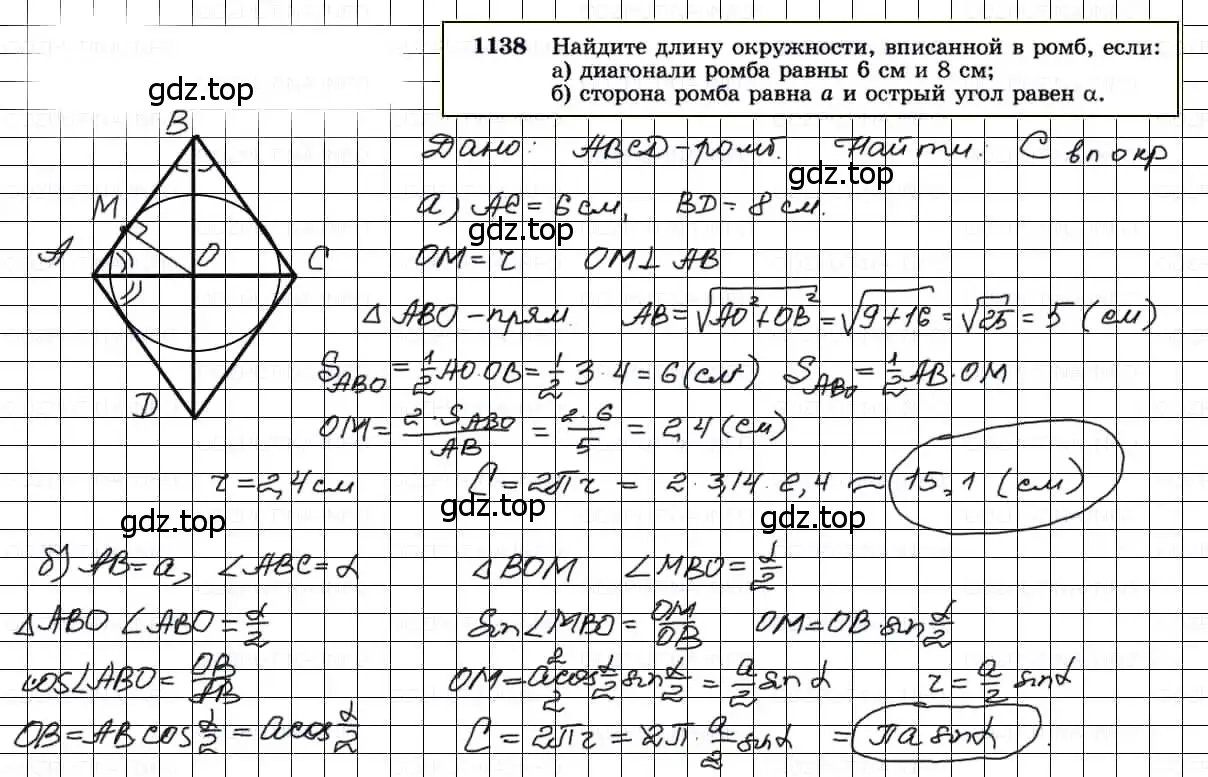 1138 Найдите длину окружности, вписанной в ромб, если:
а) диагонали ромба равны 6 см и 8 см;
б) сторона ромба равна a и острый угол равен α.
gdz.top
B
Дано: ABCD-ромб. Найти: C вп окр
gdz.top
M
а) AC = 6 см, BD = 8 см.
gdz.top
A O C
OM = r OM⊥AB
△ABO - прям. AB = √(AO²+OB²) = √(9+16) = √25 = 5 (см)
S_ABO = 1/2 AO·OB = 1/2 3·4 = 6 (см²) S_ABO = 1/2 AB·OM
D
OM = 2·S_ABO/AB = 2·6/5 = 2,4 (см)
r = 2,4 см C = 2πr = 2·3,14·2,4 ≈ 15,1 (см)
gdz.top gdz.top gdz.top
б) AB = a, ∠ABC = α △BOM ∠MBO = α/2
△ABO ∠ABO = α/2 sin∠MBO = OM/OB OM = OB·sin α/2
cos∠ABO = OB/AB OM = 2/2 a cos α/2 sin α/2 = a/2 sin α r = a/2 sin α
OB = AB cos α/2 = a cos α/2 C = 2πr = 2π·a/2 sin α = πa sin α.